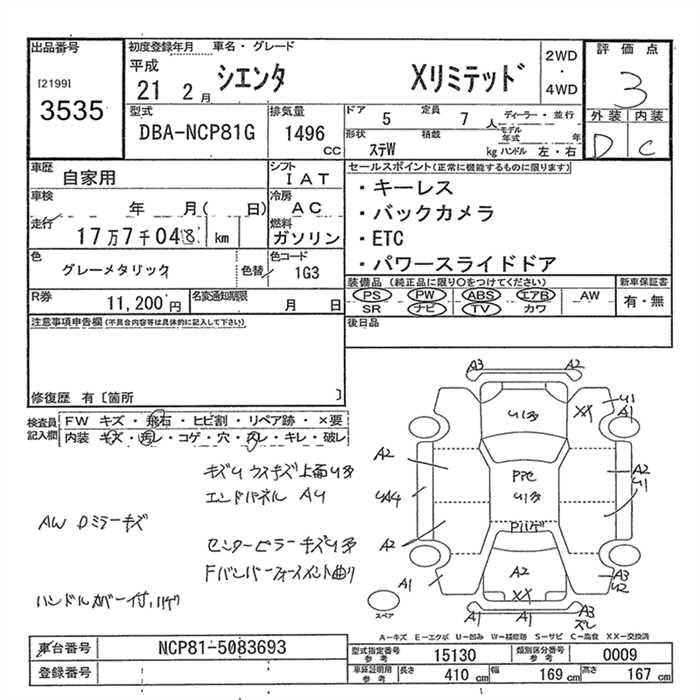 出品番号
[2199]
3535
初度登録年月 車名・グレード
平成
21 2月
シエンタ Xリミテッド
2WD
・
4WD
評価点
3
外装 内装
D C
型式
DBA-NCP81G
排気量
1496
CC
ドア 5
定員 7人
ディーラー・並行
モデル年式 年
形状 ステW
積載 kg
ハンドル 左・右
車歴
自家用
シフト
IAT
車検
年 月( 日)
冷房
AC
走行
17万7千048 km
燃料
ガソリン
色
グレーメタリック
色替
色コード
1G3
R券
11,200円
名変通知期限
月 日
セールスポイント(正常に機能するものに限ります)
・キーレス
・バックカメラ
・ETC
・パワースライドドア
装備品 (純正品に限り○をつけてください)
PS PW ABS エアB AW
SR ナビ TV カワ
新車保証書
有・無
後日品
注意事項申告欄 (不具合内容等は具体的に記入して下さい)
修復歴 有〔箇所 〕
検査員
記入欄
FW キズ・飛石・ヒビ割・リペア跡・×要
内装 キズ・汚レ・コゲ・穴・スレ・キレ・破レ
キズU ウスキズ上面U多
エンドパネル AU
AW Dミラーキズ
センターピラーキズU多
Fバンパーフォースメント曲り
ハンドルカバー付ハゲ
A3 A2
U多
XX
U1
A1
A2
A2
U1
UA4
U多
A2
Pハゲ
A2
XX
A1
A3
U2
A1 A1
A3
ズレ
スペア
A-キズ E-エクボ U-凹み W-補修跡 S-サビ C-腐食 XX-交換済
車台番号
NCP81-5083693
登録番号
型式指定番号
参考
15130
類別区分番号
参考
0009
車庫証明用
参考
長さ 410 cm
幅 169 cm
高さ 167 cm